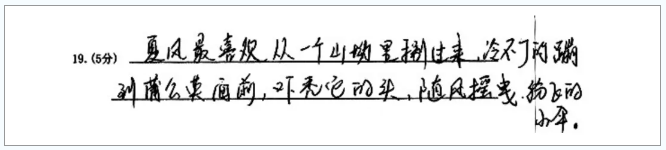 19.(5分) 夏风最喜欢从一个山坳里捌过来,冷不丁的蹦
到蒲公英面前,吓秃它的头,随风摇曳,飞的
小伞。